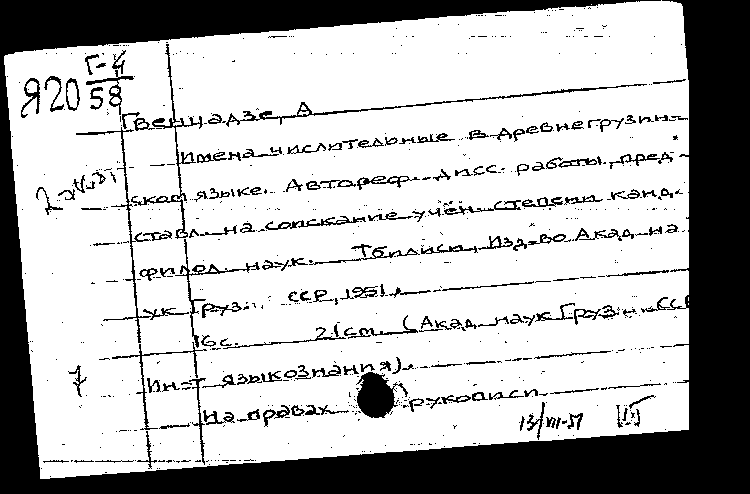 Я20 Г-4
58
Гвенцадзе, А
Имена числительные в древнегрузин-
ском языке. Автореф. дисс. работы, пред-
ставл. на соискание учен. степени канд.
филол. наук. Тбилиси, Изд-во Акад. на
ук Груз. ССР, 1951.
16 с. 21 см. (Акад. наук Груз. ССР
Ин-т языкознания).
На правах рукописи
7
13/VII-51